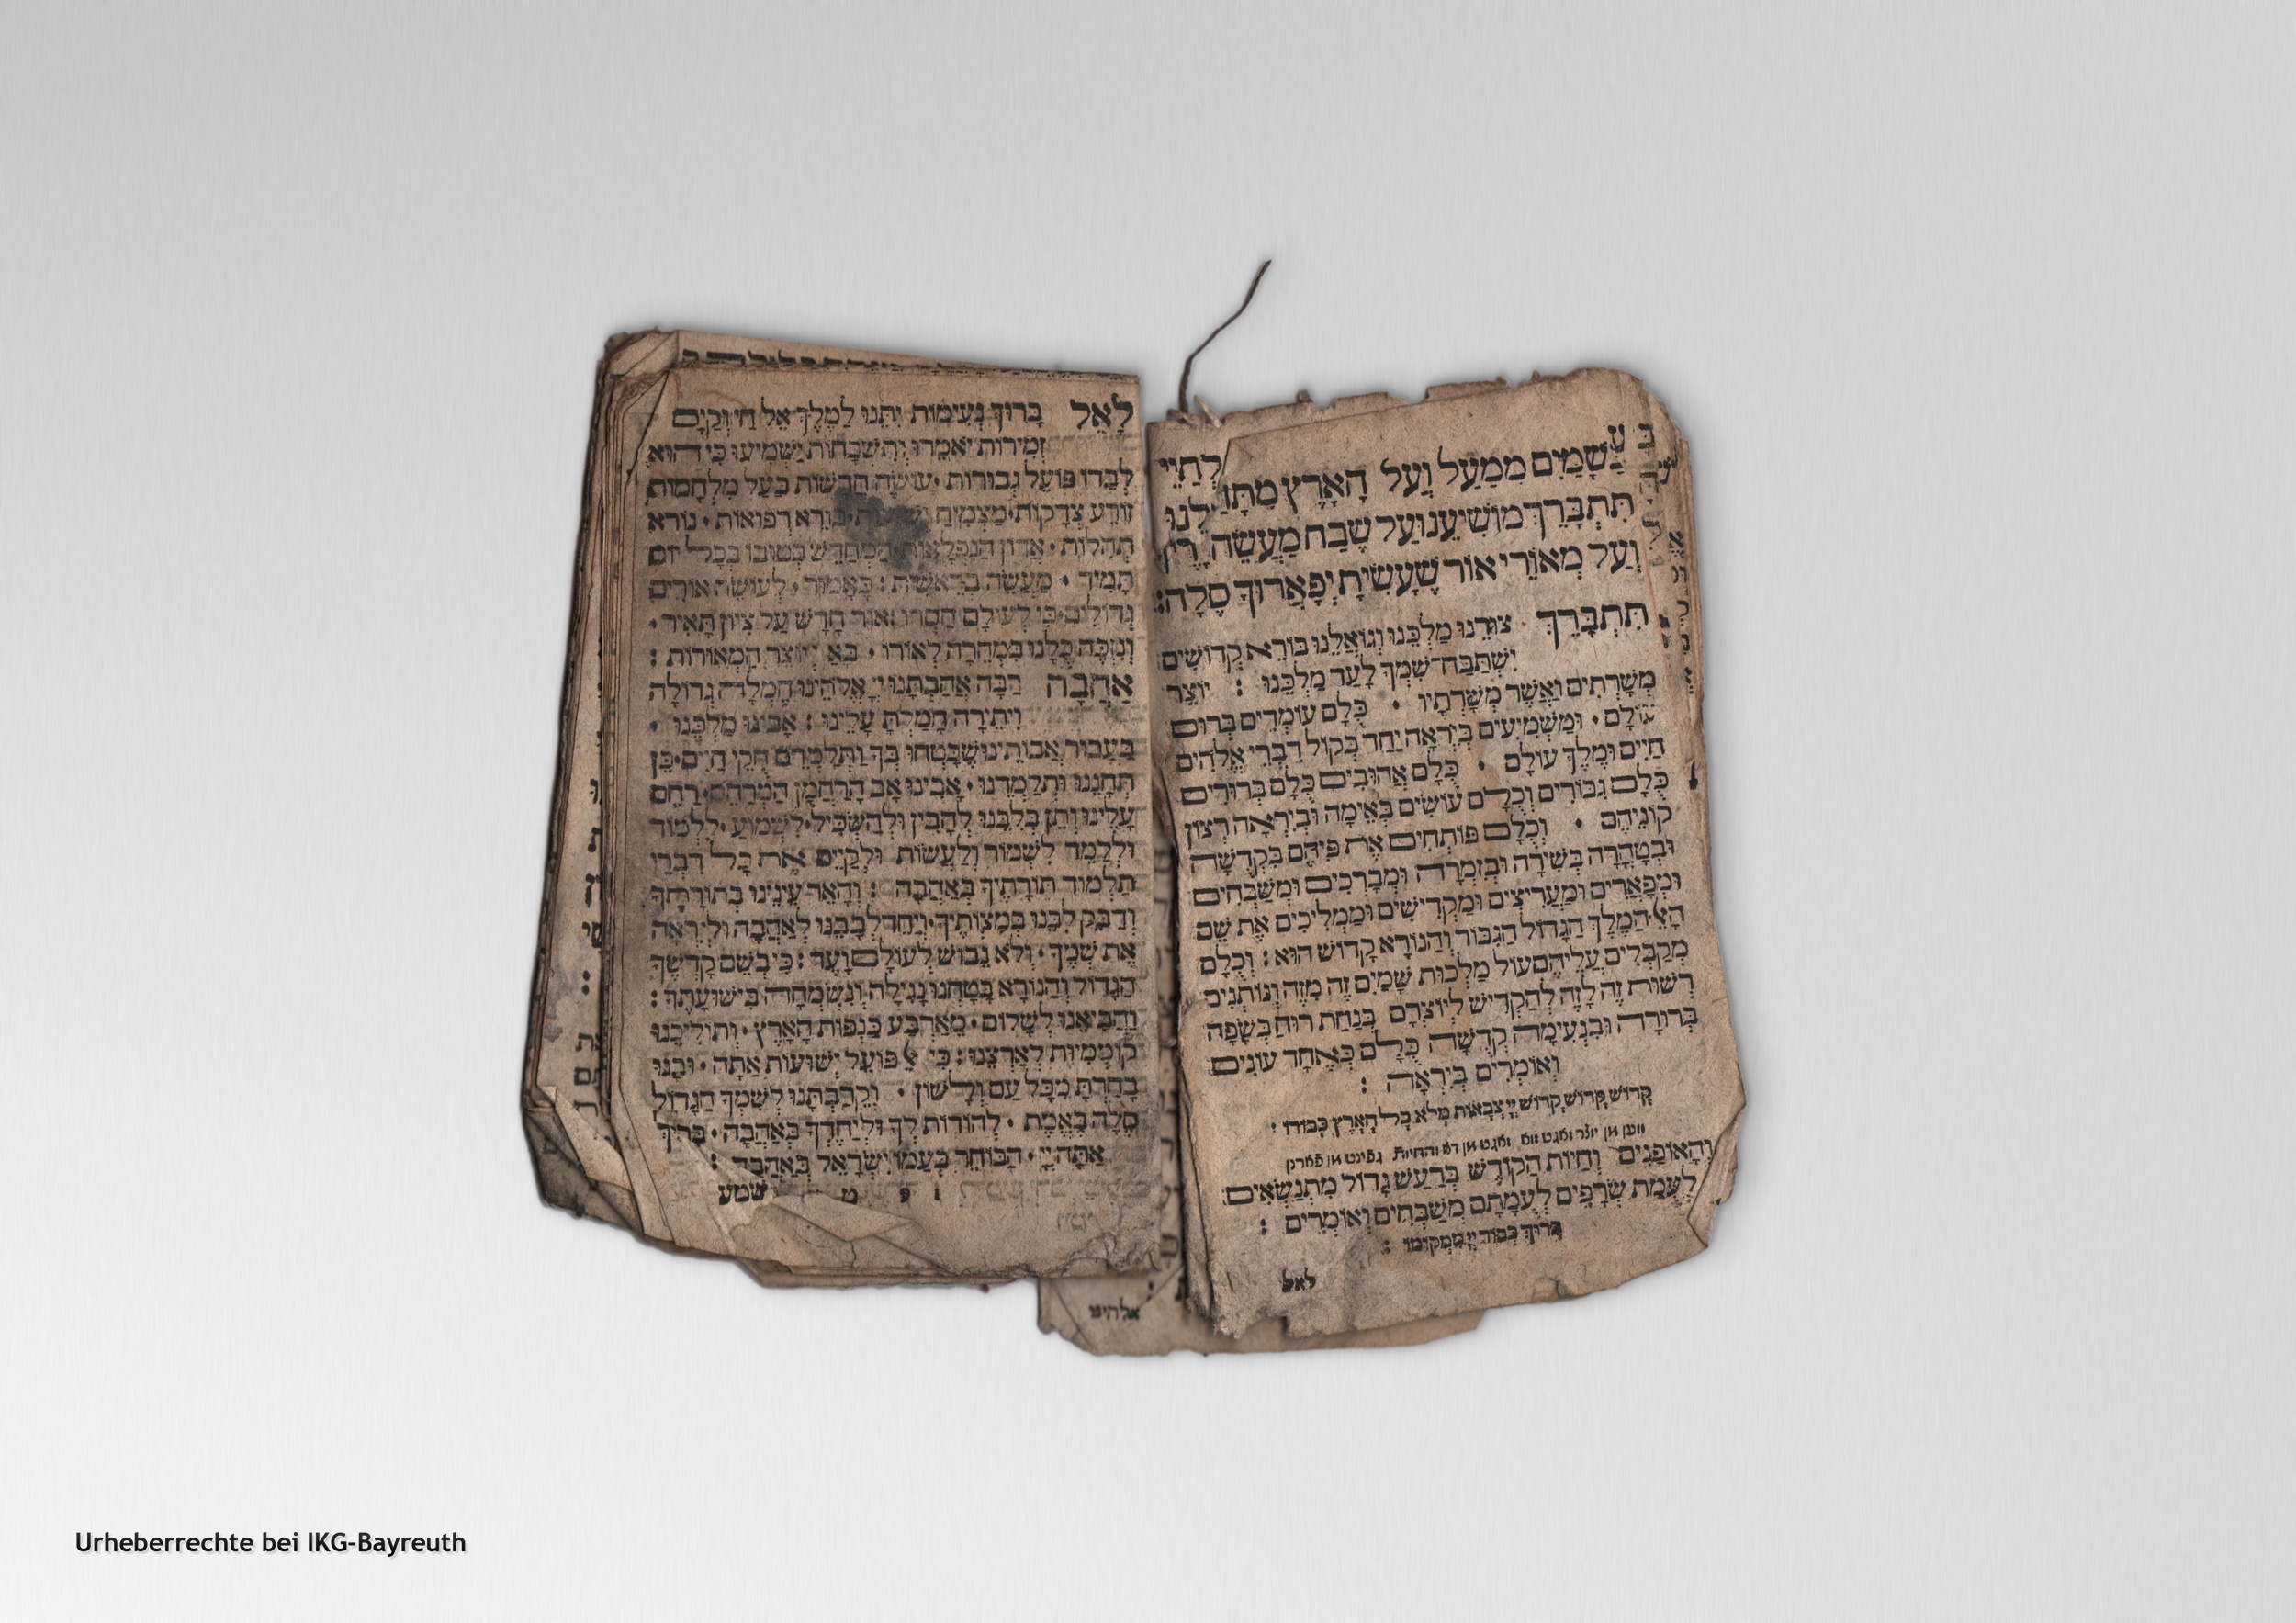 בַּשָּׁמַיִם מִמַּעַל וְעַל הָאָרֶץ
תִּתְבָּרֵךְ מוֹשִׁיעֵנוּ עַל שֶׁבַח מַעֲשֵׂה
וְעַל מְאוֹרֵי אוֹר שֶׁעָשִׂיתָ יְפָאֲרוּךָ סֶּלָה:
תִּתְבָּרֵךְ צוּרֵנוּ מַלְכֵּנוּ וְגוֹאֲלֵנוּ בּוֹרֵא קְדוֹשִׁים
יִשְׁתַּבַּח שִׁמְךָ לָעַד מַלְכֵּנוּ : יוֹצֵר
מְשָׁרְתִים וַאֲשֶׁר מְשָׁרְתָיו • כֻּלָּם עוֹמְדִים בְּרוּם
עוֹלָם • וּמַשְׁמִיעִים בְּיִרְאָה יַחַד בְּקוֹל דִּבְרֵי אֱלֹהִים
חַיִּים וּמֶלֶךְ עוֹלָם • כֻּלָּם אֲהוּבִים כֻּלָּם בְּרוּרִים
כֻּלָּם גִּבּוֹרִים וְכֻלָּם עוֹשִׂים בְּאֵימָה וּבְיִרְאָה רְצוֹן
קוֹנֵיהֶם • וְכֻלָּם פּוֹתְחִים אֶת פִּיהֶם בִּקְדֻשָּׁה
וּבְטָהֳרָה בְּשִׁירָה וּבְזִמְרָה וּמְבָרְכִים וּמְשַׁבְּחִים
וּמְפָאֲרִים וּמַעֲרִיצִים וּמַקְדִּישִׁים וּמַמְלִיכִים אֶת שֵׁם
הַמֶּלֶךְ הַגָּדוֹל הַגִּבּוֹר וְהַנּוֹרָא קָדוֹשׁ הוּא : וְכֻלָּם
מְקַבְּלִים עֲלֵיהֶם עוֹל מַלְכוּת שָׁמַיִם זֶה מִזֶּה וְנוֹתְנִים
רְשׁוּת זֶה לָזֶה לְהַקְדִּישׁ לְיוֹצְרָם בְּנַחַת רוּחַ בְּשָׂפָה
בְּרוּרָה וּבִנְעִימָה קְדֻשָּׁה כֻּלָּם כְּאֶחָד עוֹנִים
וְאוֹמְרִים בְּיִרְאָה :
קָדוֹשׁ קָדוֹשׁ קָדוֹשׁ יְיָ צְבָאוֹת מְלֹא כָל הָאָרֶץ כְּבוֹדוֹ :
וְהָאוֹפַנִּים וְחַיּוֹת הַקּוֹדֶשׁ בְּרַעַשׁ גָּדוֹל מִתְנַשְּׂאִים
לְעֻמַּת שְׂרָפִים לְעֻמָּתָם מְשַׁבְּחִים וְאוֹמְרִים :
בָּרוּךְ כְּבוֹד יְיָ מִמְּקוֹמוֹ :
לאל
לָאֵל בָּרוּךְ נְעִימוֹת יִתֵּנוּ לַמֶּלֶךְ אֵל חַי וְקַיָּם
זְמִירוֹת יֹאמְרוּ וְתִשְׁבָּחוֹת יַשְׁמִיעוּ כִּי הוּא
לְבַדּוֹ פּוֹעֵל גְּבוּרוֹת • עוֹשֶׂה חֲדָשׁוֹת בַּעַל מִלְחָמוֹת
זוֹרֵעַ צְדָקוֹת • מַצְמִיחַ בּוֹרֵא רְפוּאוֹת • נוֹרָא
תְהִלּוֹת • אֲדוֹן הַנִּפְלָאוֹת הַמְחַדֵּשׁ בְּטוּבוֹ בְּכָל יוֹם
תָּמִיד • מַעֲשֵׂה בְרֵאשִׁית : כָּאָמוּר • לְעוֹשֵׂה אוֹרִים
גְּדוֹלִים • כִּי לְעוֹלָם חַסְדּוֹ : אוֹר חָדָשׁ עַל צִיּוֹן תָּאִיר •
וְנִזְכֶּה כֻלָּנוּ בִּמְהֵרָה לְאוֹרוֹ • בָּא יְיָ יוֹצֵר הַמְּאוֹרוֹת :
אַהֲבָה רַבָּה אֲהַבְתָּנוּ יְיָ אֱלֹהֵינוּ חֶמְלָה גְדוֹלָה
וִיתֵירָה חָמַלְתָּ עָלֵינוּ : אָבִינוּ מַלְכֵּנוּ •
בַּעֲבוּר אֲבוֹתֵינוּ שֶׁבָּטְחוּ בְךָ וַתְּלַמְּדֵם חֻקֵּי חַיִּים • כֵּן
תְּחָנֵּנוּ וּתְלַמְּדֵנוּ • אָבִינוּ אָב הָרַחֲמָן הַמְרַחֵם • רַחֵם
עָלֵינוּ וְתֵן בְּלִבֵּנוּ לְהָבִין וּלְהַשְׂכִּיל • לִשְׁמוֹעַ • לִלְמוֹד
וּלְלַמֵּד לִשְׁמוֹר וְלַעֲשׂוֹת וּלְקַיֵּם אֶת כָּל דִּבְרֵי
תַלְמוּד תּוֹרָתֶךָ בְּאַהֲבָה : וְהָאֵר עֵינֵינוּ בְּתוֹרָתֶךָ
וְדַבֵּק לִבֵּנוּ בְּמִצְוֹתֶיךָ • וְיַחֵד לְבָבֵנוּ לְאַהֲבָה וּלְיִרְאָה
אֶת שְׁמֶךָ • וְלֹא נֵבוֹשׁ לְעוֹלָם וָעֶד : כִּי בְשֵׁם קָדְשְׁךָ
הַגָּדוֹל וְהַנּוֹרָא בָּטָחְנוּ נָגִילָה וְנִשְׂמְחָה בִּישׁוּעָתֶךָ :
וַהֲבִיאֵנוּ לְשָׁלוֹם • מֵאַרְבַּע כַּנְפוֹת הָאָרֶץ • וְתוֹלִיכֵנוּ
קוֹמְמִיּוּת לְאַרְצֵנוּ : כִּי אֵל פּוֹעֵל יְשׁוּעוֹת אָתָּה • וּבָנוּ
בָחַרְתָּ מִכָּל עַם וְלָשׁוֹן • וְקֵרַבְתָּנוּ לְשִׁמְךָ הַגָּדוֹל
סֶלָה בֶּאֱמֶת • לְהוֹדוֹת לְךָ וּלְיַחֶדְךָ בְּאַהֲבָה • בָּרוּךְ
אַתָּה יְיָ • הַבּוֹחֵר בְּעַמּוֹ יִשְׂרָאֵל בְּאַהֲבָה :
שמע
אלהינו
Urheberrechte bei IKG-Bayreuth